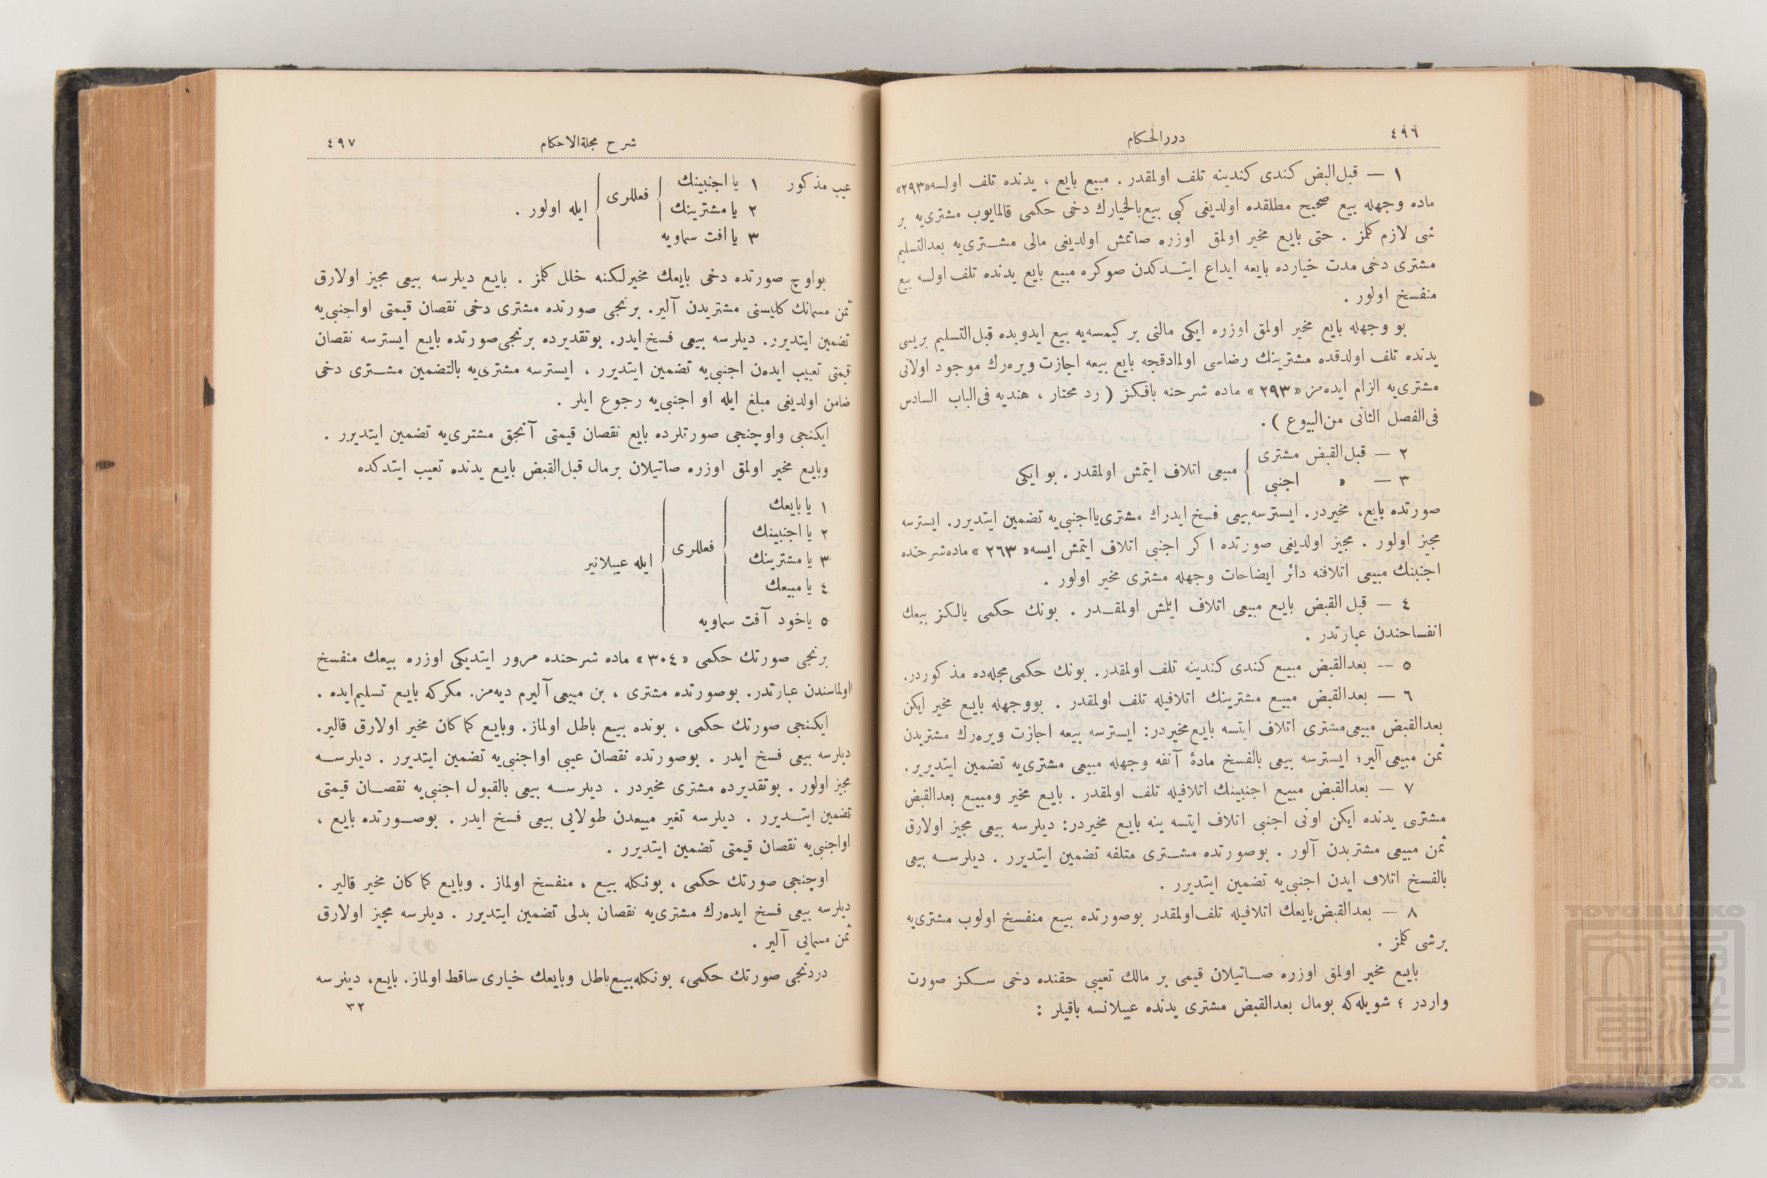 ٤٩٦
دررالحكام
١ — قبل‌البض كندى كندينه تلف اولمقدر . مبيع بايع ، يدنده تلف اولسه «٢٩٣»
ماده وجهله بيع صحيح مطلقده اولديغى كبى بيع‌بالخيارك دخى حكمى قالمايوب مشترى‌يه بر
شى لازم كلمز . حتى بايع مخير اولمق اوزره صاتمش اولديغى مالى مشترى‌يه بعدالتسليم
مشترى دخى مدت خيارده بايعه ايداع ايتدكدن صوكره مبيع بايع يدنده تلف اولسه بيع
منفسخ اولور .
بو وجهله بايع مخير اولمق اوزره ايكى مالنى بر كيمسه‌يه بيع ايدوبده قبل‌التسليم بريسى
يدنده تلف اولدقده مشترينك رضاسى اولمادقجه بايع بيعه اجازت ويره‌رك موجود اولانى
مشترى‌يه الزام ايده‌مز « ٢٩٣ » ماده شرحنه باقكز ( رد محتار ، هنديه فى‌الباب السادس
فى‌الفصل الثانى من‌البيوع ) .
٢ — قبل‌القبض مشترى
٣ — » اجنبى
مبيعى اتلاف ايتمش اولمقدر . بو ايكى
صورتده بايع، مخيردر. ايسترسه‌بيعى فسخ ايدرك مشترى‌يااجنبى‌يه تضمين ايتديرر. ايسترسه
مجيز اولور . مجيز اولديغى صورتده اكر اجنبى اتلاف ايتمش ايسه« ٢٦٣ » ماده‌شرحنده
اجنبنك مبيعى اتلافنه دائر ايضاحات وجهله مشترى مخير اولور .
٤ — قبل القبض بايع مبيعى اتلاف ايلمش اولمقدر . بونك حكمى يالكز بيعك
انفساخندن عبارتدر .
٥ — بعدالقبض مبيع كندى كندينه تلف اولمقدر. بونك حكمى‌مجله‌ده مذكوردر.
٦ — بعدالقبض مبيع مشترينك اتلافيله تلف اولمقدر . بووجهله بايع مخير ايكن
بعدالقبض مبيعى‌مشترى اتلاف ايتسه بايع‌مخيردر: ايسترسه بيعه اجازت ويره‌رك مشتريدن
ثمن مبيعى‌آلير؛ ايسترسه بيعى بالفسخ مادهٔ آنفه وجهله مبيعى مشترى‌يه تضمين ايتديرير.
٧ — بعدالقبض مبيع اجنبينك اتلافيله تلف اولمقدر . بايع مخير ومبيع بعدالقبض
مشترى يدنده ايكن اونى اجنبى اتلاف ايتسه ينه بايع مخيردر: ديلرسه بيعى مجيز اولارق
ثمن مبيعى مشتريدن آلور . بوصورتده مشترى متلفه تضمين ايتديرر . ديلرسه بيعى
بالفسخ اتلاف ايدن اجنبى‌يه تضمين ايتديرر .
٨ — بعدالقبض‌بايعك اتلافيله تلف‌اولمقدر بوصورتده بيع منفسخ اولوب مشترى‌يه
برشى كلمز .
بايع مخير اولمق اوزره صاتيلان قيمى بر مالك تعيبى حقنده دخى سكز صورت
واردر ؛ شويله‌كه بومال بعدالقبض مشترى يدنده عيبلانسه باقيلر :
شرح مجلةالاحكام
٤٩٧
عيب مذكور
١ يا اجنبينك
٢ يا مشترينك
فعللرى
٣ يا افت سماويه
ايله اولور .
بواوچ صورتده دخى بايعك مخيرلكنه خلل كلمز . بايع ديلرسه بيعى مجيز اولارق
ثمن مسمانك كليسنى مشتريدن آلير. برنجى صورتده مشترى دخى نقصان قيمتى اواجنبى‌يه
تضمين ايتديرر. ديلرسه بيعى فسخ ايدر. بوتقديرده برنجى‌صورتده بايع ايسترسه نقصان
قيمتى تعييب ايده‌ن اجنبى‌يه تضمين ايتديرر ، ايسترسه مشترى‌يه بالتضمين مشترى دخى
ضامن اولديغى مبلغ ايله او اجنبى‌يه رجوع ايلر .
ايكنجى واوچنجى صورتلرده بايع نقصان قيمتى آنجق مشترى‌يه تضمين ايتديرر .
وبايع مخير اولمق اوزره صاتيلان برمال قبل‌القبض بايع يدنده تعيب ايتدكده
١ يا بايعك
٢ يا اجنبينك
٣ يا مشترينك
٤ يا مبيعك
فعللرى
٥ ياخود آفت سماويه
ايله عيبلانير
برنجى صورتك حكمى «٣٠٤» ماده شرحنده مرور ايتديكى اوزره بيعك منفسخ
اولماسندن عبارتدر. بوصورتده مشترى ، بن مبيعى‌آليرم ديه‌مز. مكركه بايع تسليم‌ايده .
ايكنجى صورتك حكمى ، بونده بيع باطل اولماز. وبايع كماكان مخير اولارق قالير.
ديلرسه بيعى فسخ ايدر . بوصورتده نقصان عيبى اواجنبى‌يه تضمين ايتديرر . ديلرسه
مجيز اولور . بوتقديرده مشترى مخيردر . ديلرسه بيعى بالقبول اجنبى‌يه نقصان قيمتى
تضمين ايتديرر . ديلرسه تغير مبيعدن طولايى بيعى فسخ ايدر . بوصورتده بايع ،
اواجنبى‌يه نقصان قيمتى تضمين ايتديرر .
اوچنجى صورتك حكمى ، بونكله بيع ، منفسخ اولماز . وبايع كماكان مخير قالير .
ديلرسه بيعى فسخ ايده‌رك مشترى‌يه نقصان بدلى تضمين ايتديرر . ديلرسه مجيز اولارق
ثمن مسمايى آلير .
دردنجى صورتك حكمى، بونكله‌بيع‌باطل وبايعك خيارى ساقط اولماز. بايع، ديلرسه
٣٢
TOYO BUNKO